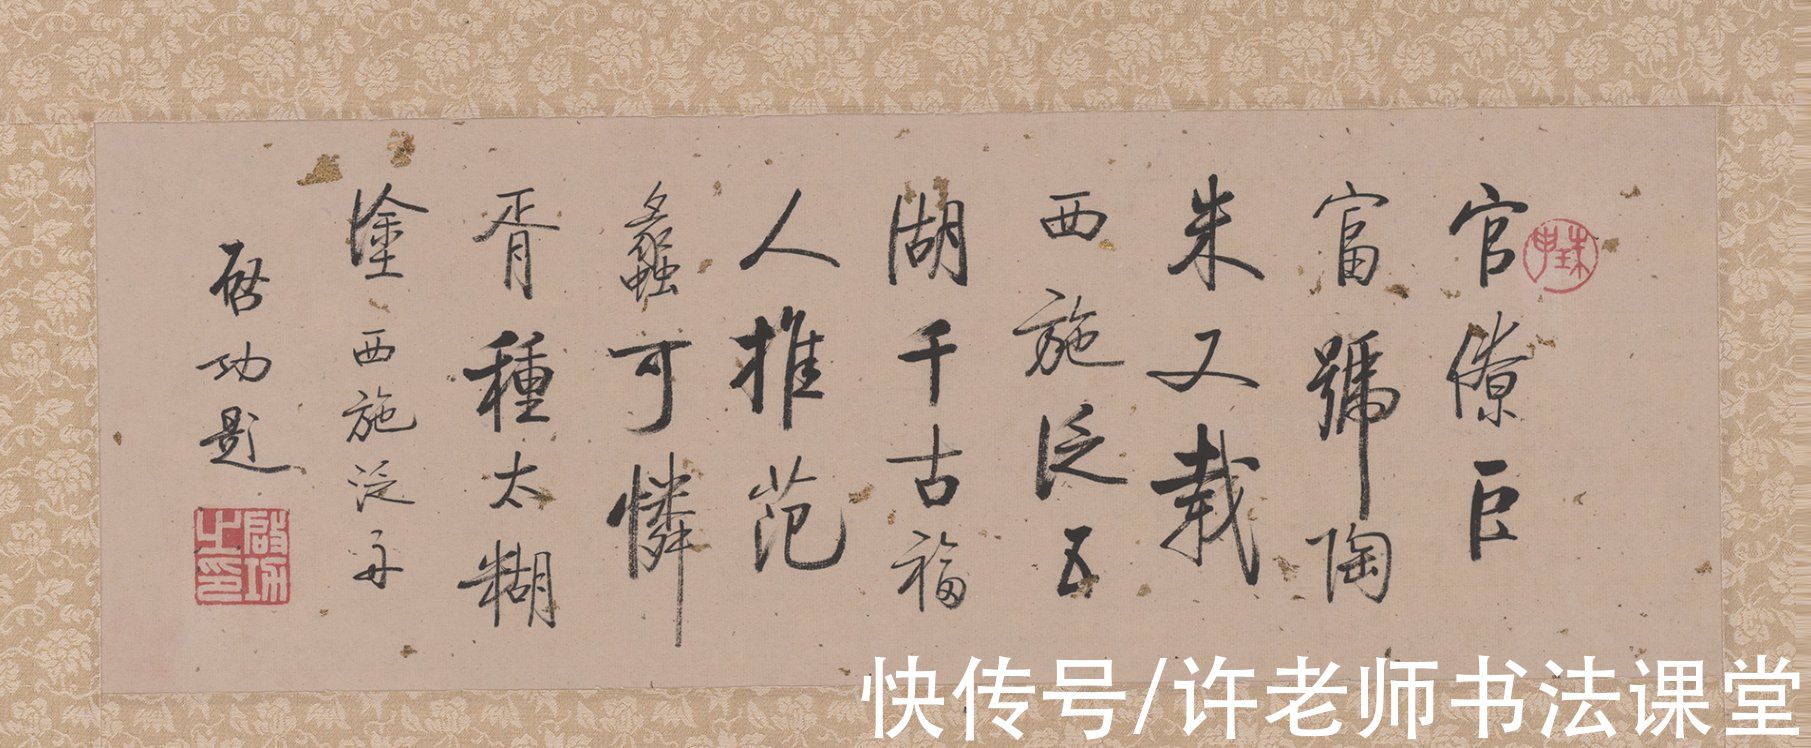 官僚臣
富號陶
朱又載
西施泛五
湖千古福
人推范
蠡可憐
胥種太糊
塗西施泛舟
啓功題
啟功之印
快传号/许老师书法课堂